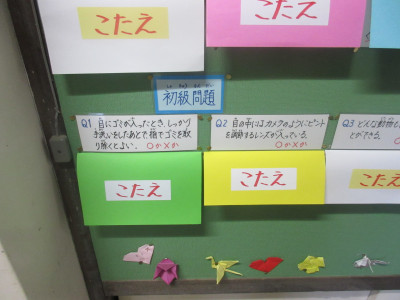 こたえ
こたえ
しょきゅうもんだい
初級問題
Q1 目にゴミが入ったとき、しっかり
手洗いをしたあとで指でゴミを取
り除くとよい。 ○か×か
Q2 目の中には、カメラのようにピント
を調節するレンズが入っている。
○か×か
Q3 どんな動物
とができる。
こたえ
こたえ
こたえ